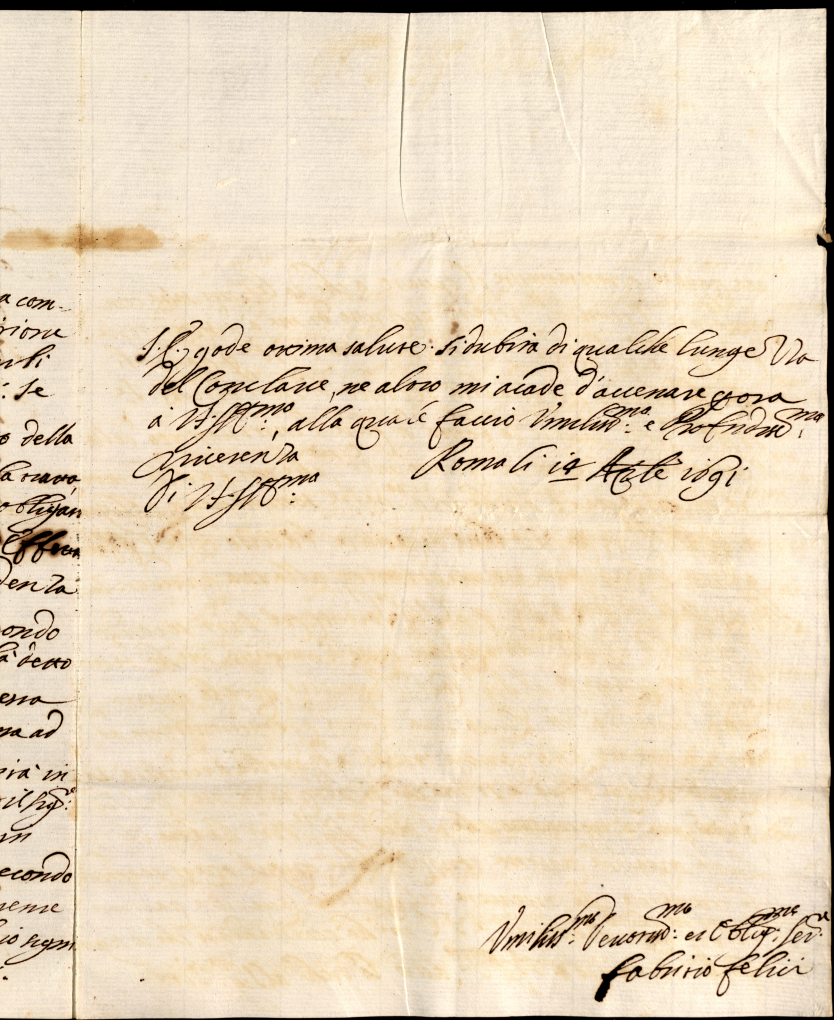 a com-
rione
: se
o della
la nava
obligan
denza
ondo
là detto
ena
ma ad
irà in
il Sig.re
in
econdo
mente
S. E. gode ottima salute. si dubita di qualche lunge Via
del Conclave, ne altro mi acade d'accenare p ora
à V.S. Ill.ma, alla quale faccio Vmiliss.ma e Profondiss.ma
riverenza Roma li 14 Aple 1691
Di V.S. Ill.ma
Vmiliss.mo Devotiss.mo et Oblig.mo Ser.re
Fabritio Felici